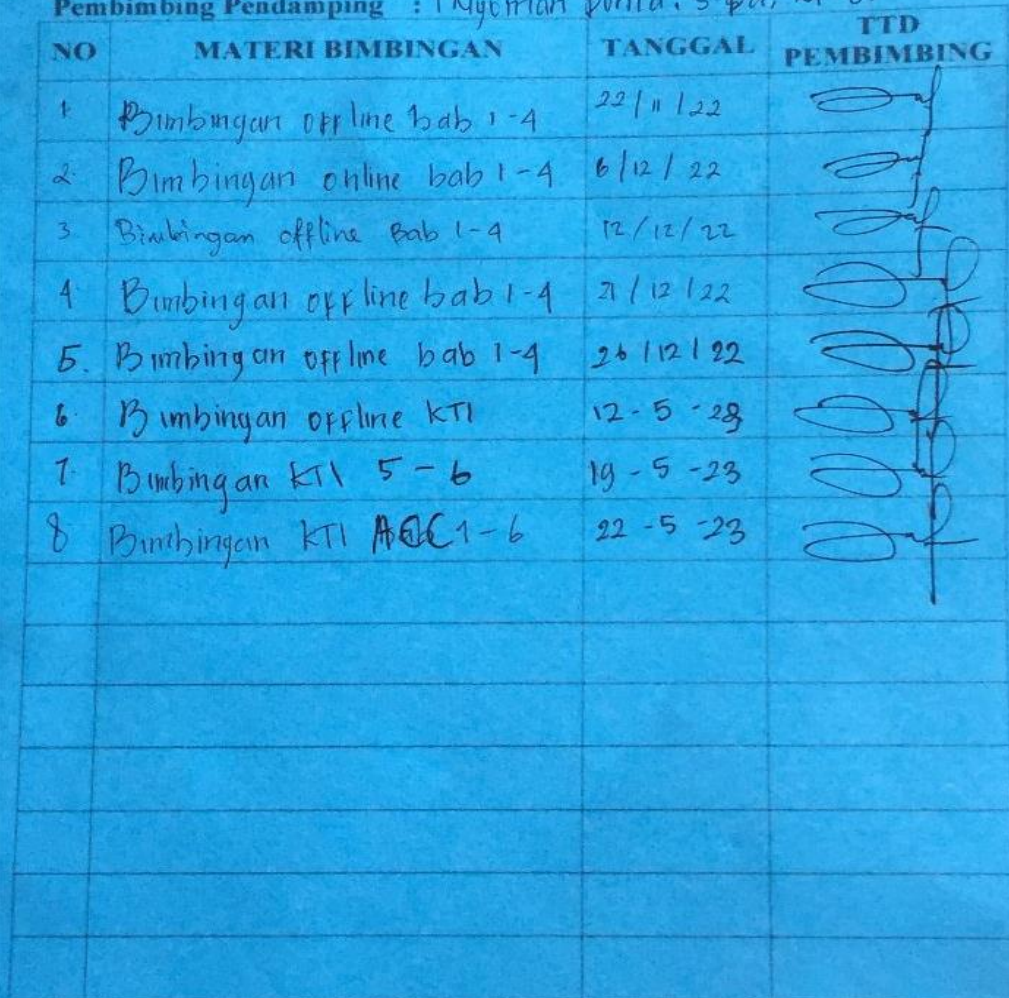 Pembimbing Pendamping : I Nyoman
NO MATERI BIMBINGAN TANGGAL TTD PEMBIMBING
1. Bimbingan offline bab 1-4 22/11/22
2. Bimbingan online bab 1-4 6/12/22
3 Bimbingan offline Bab 1-4 12/12/22
4 Bimbingan offline bab 1-4 21/12/22
5. Bimbingan offline bab 1-4 26/12/22
6. Bimbingan offline KTI 12-5-23
7. Bimbingan KTI 5-6 19-5-23
8 Bimbingan KTI ACC 1-6 22-5-23